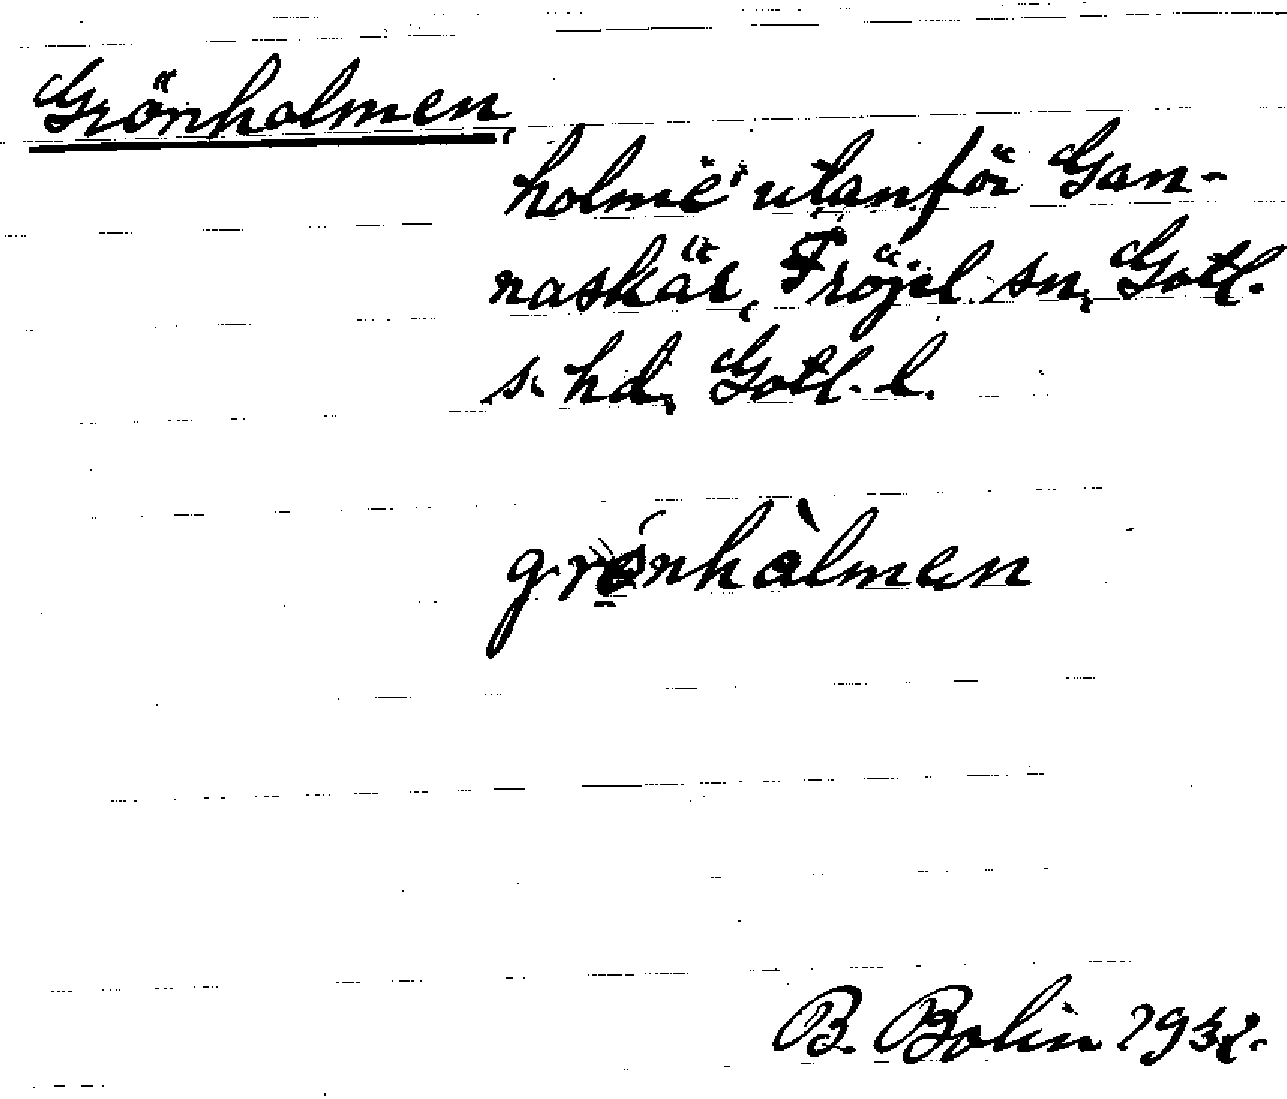 Grönholmen,
holme utanför Gan-
naskär, Fröjel sn, Gotl.
s. hd, Gotl. l.
grönhàlmen
B. Bolin